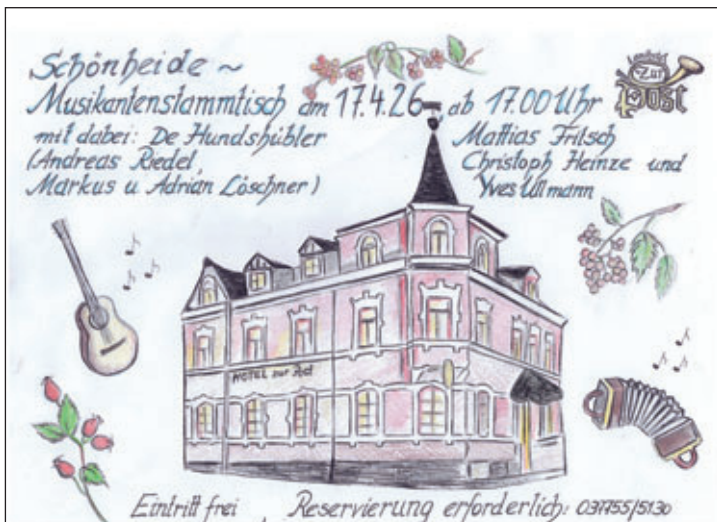 Schönheide ~
Zur
Post
Musikantenstammtisch am 17.4.26 ab 17.00 Uhr
mit dabei: De Hundshübler
(Andreas Riedel,
Markus u Adrian Löschner)
Mattias Fritsch
Christoph Heinze und
Yves Ullmann
HOTEL zur Post
Eintritt frei
Reservierung erforderlich: 037755/5130